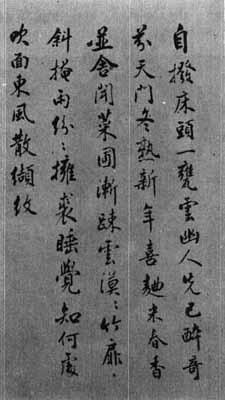 自撥床頭一甕雲幽人先已醉奇
芬天門冬熟新年喜麯米春香
並舍聞菜圃漸踈雲漠〻竹扉
斜掩雨紛〻擁裘睡覺知何處
吹面東風散纈紋